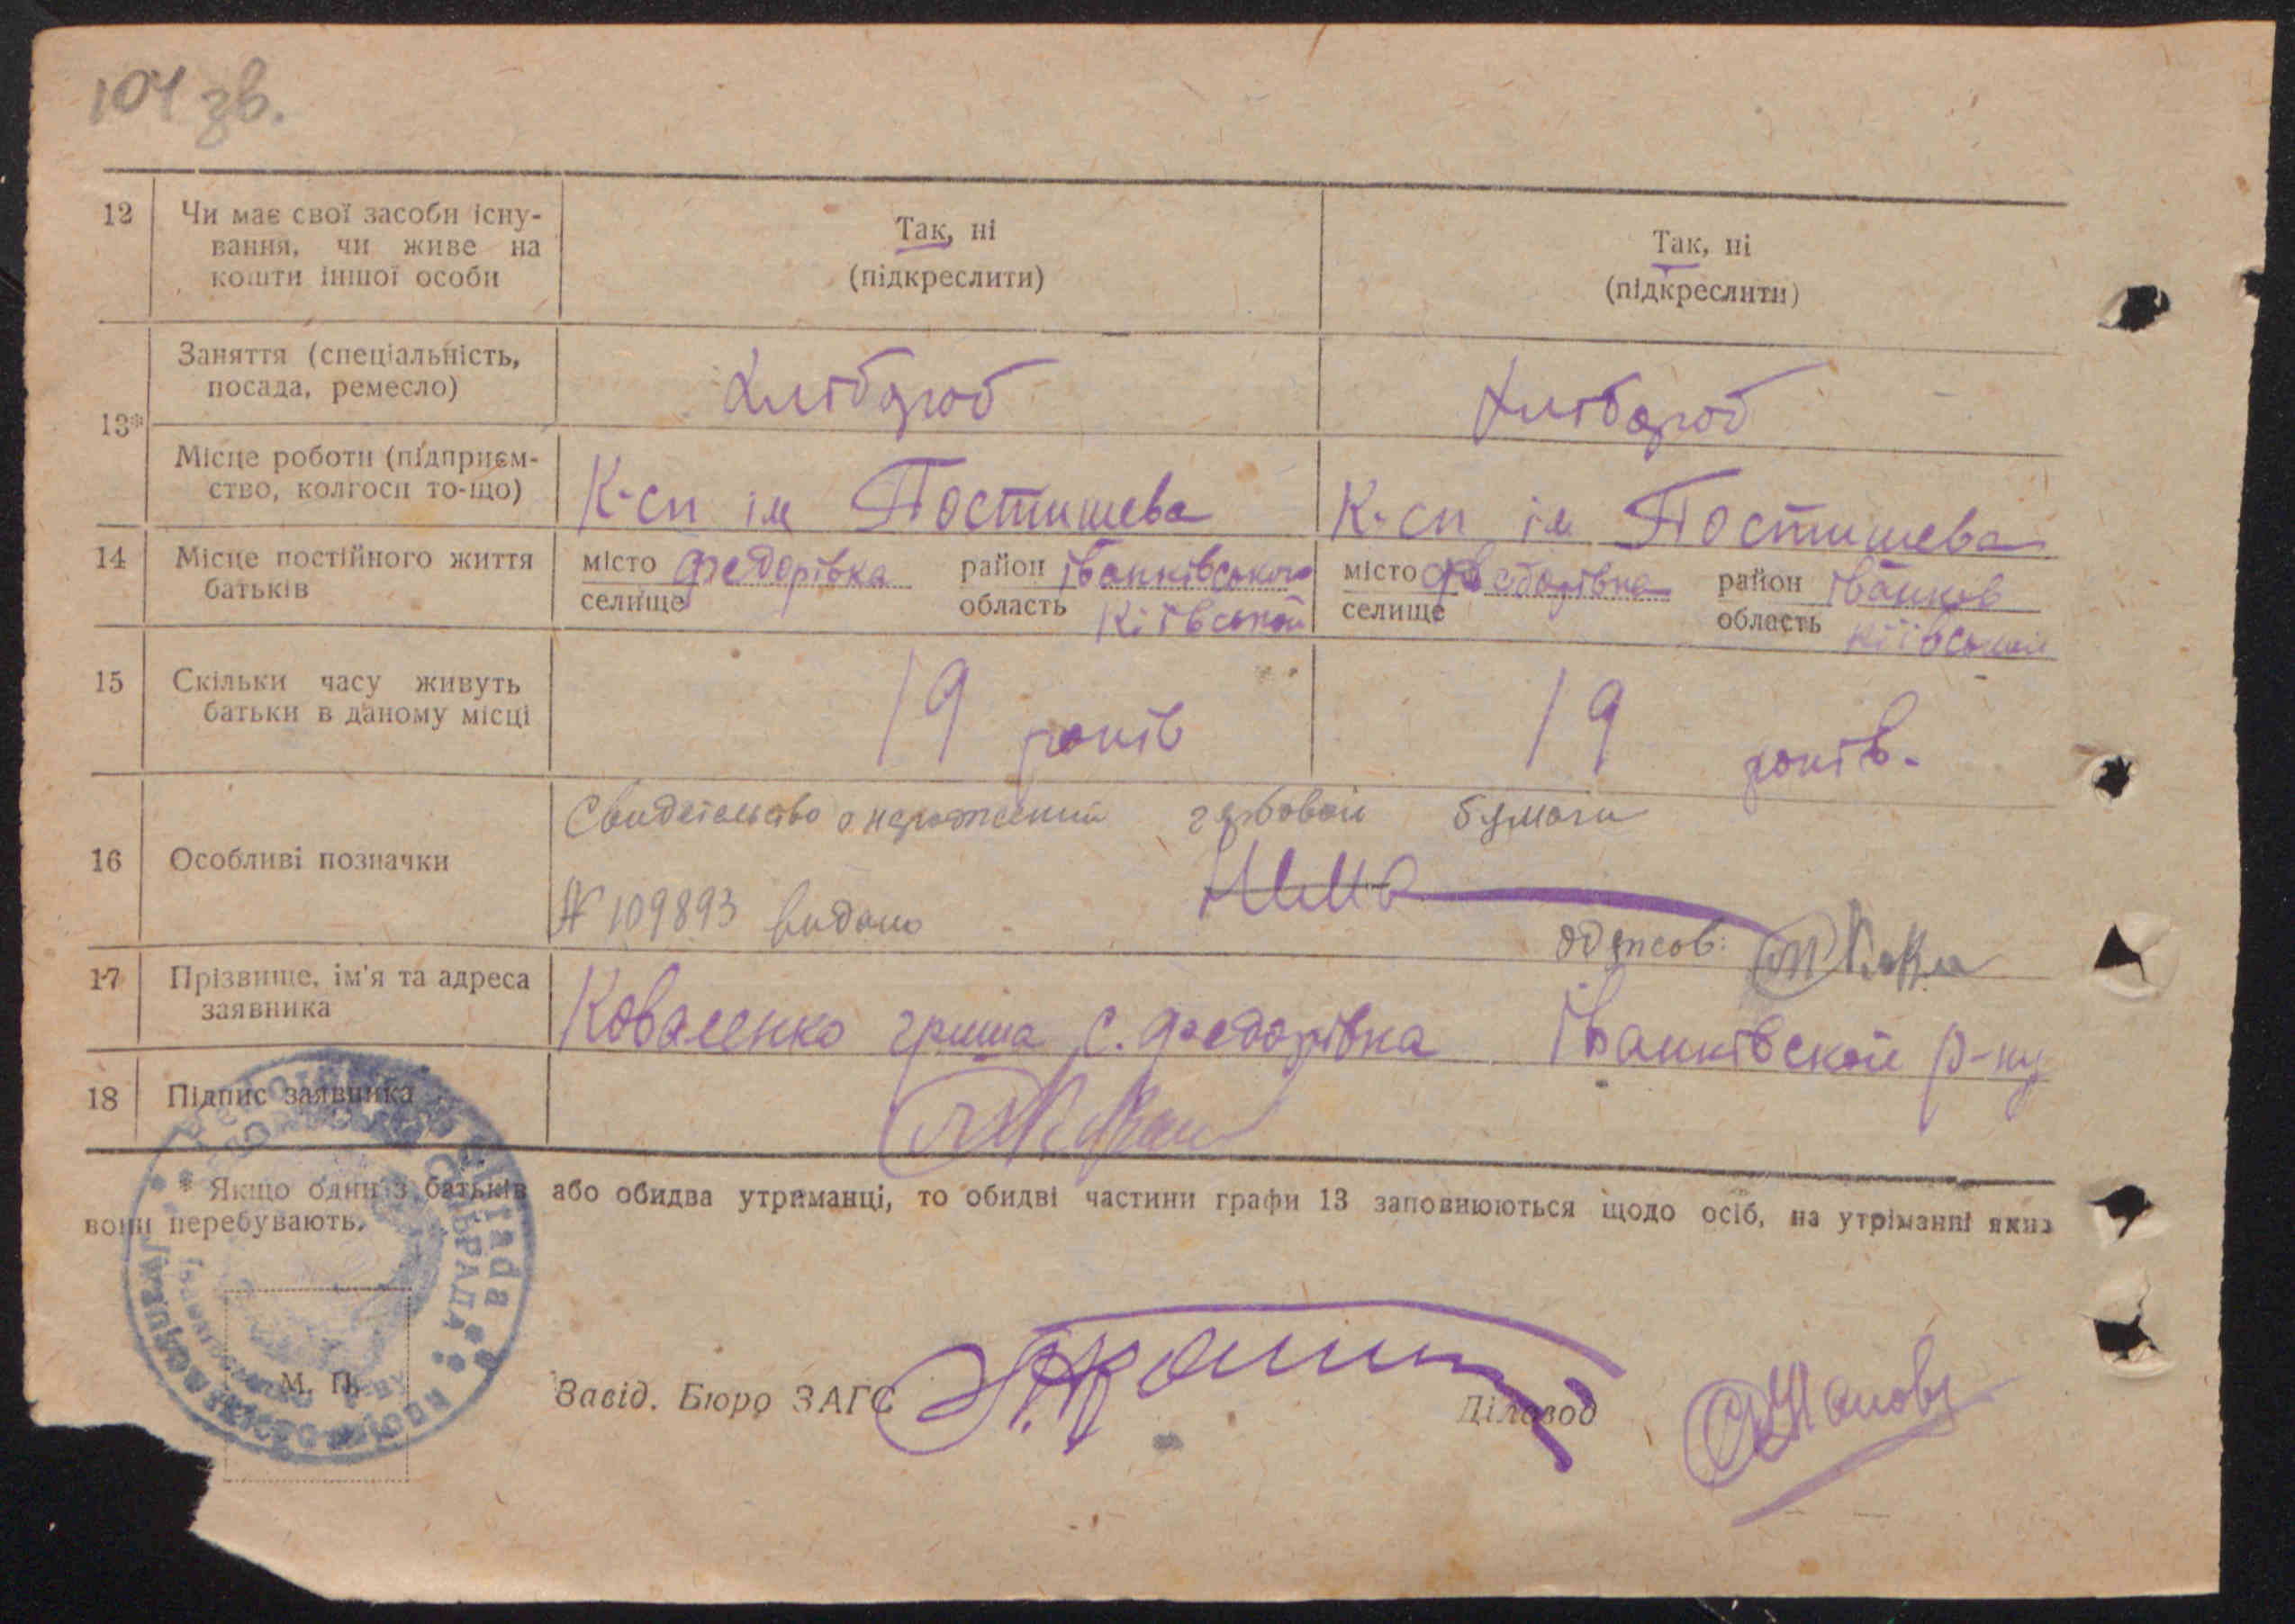 104 зв.
12 Чи має свої засоби існу-
вання, чи живе на
кошти іншої особи
Так, ні
(підкреслити)
Так, ні
(підкреслити)
13*
Заняття (спеціальність,
посада, ремесло)
Хлібороб
Хлібороб
Місце роботи (підприєм-
ство, колгосп то-що)
К-сп ім Постишева
К-сп ім Постишева
14 Місце постійного життя
батьків
місто Федорівка район іванківського
селище область Київської
місто Федорівка район іванков
селище область київської
15 Скільки часу живуть
батьки в даному місці
19 років
19 років.
16 Особливі позначки
Свидетельство о нарождении гербовой бумаги
№ 109893 видано
Нима
17 Прізвище, ім'я та адреса
заявника
Коваленко гриша с. Федорівка Іванківской р-ну
18 Підпис заявника
* Якщо один з батьків або обидва утриманці, то обидві частини графи 13 заповнюються щодо осіб, на утріманні яких
вони перебувають.
М. П.
Завід. Бюро ЗАГС
Діловод